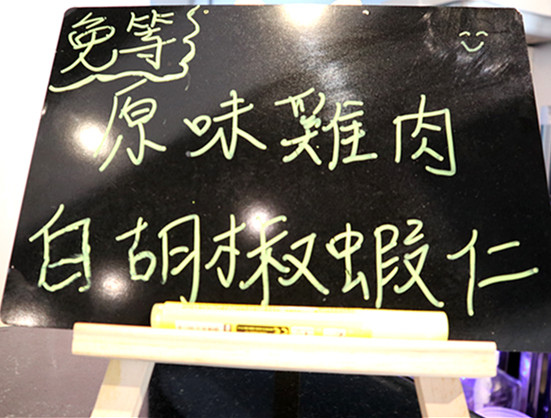 免等
原味雞肉
白胡椒蝦仁